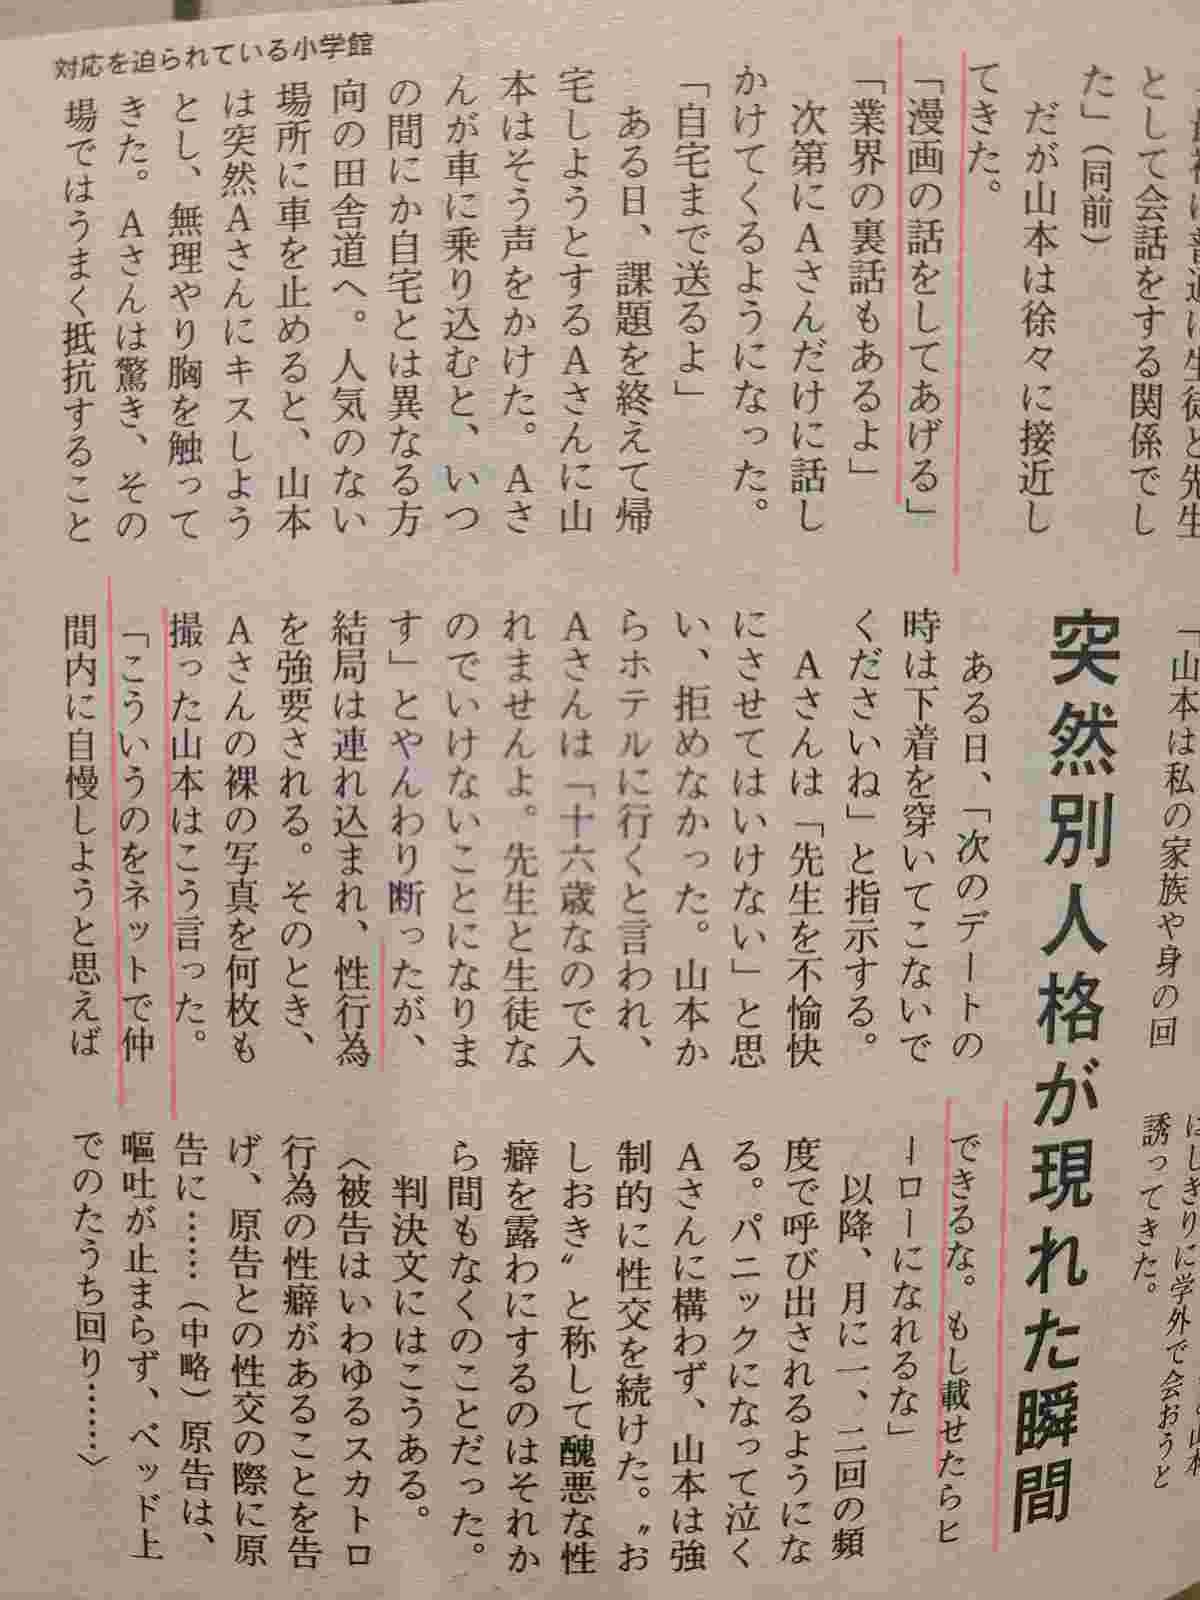 対応を迫られている小学館
は普通に生徒と先生
として会話をする関係でし
た」（同前）
だが山本は徐々に接近し
てきた。
「漫画の話をしてあげる」
「業界の裏話もあるよ」
次第にAさんだけに話し
かけてくるようになった。
「自宅まで送るよ」
ある日、課題を終えて帰
宅しようとするAさんに山
本はそう声をかけた。Aさ
んが車に乗り込むと、いつ
の間にか自宅とは異なる方
向の田舎道へ。人気のない
場所に車を止めると、山本
は突然Aさんにキスしよう
とし、無理やり胸を触って
きた。Aさんは驚き、その
場ではうまく抵抗すること
「山本は私の家族や身の回
突然別人格が現れた瞬間
ある日、「次のデートの
時は下着を穿いてこないで
くださいね」と指示する。
Aさんは「先生を不愉快
にさせてはいけない」と思
い、拒めなかった。山本か
らホテルに行くと言われ、
Aさんは「十六歳なので入
れませんよ。先生と生徒な
のでいけないことになりま
す」とやんわり断ったが、
結局は連れ込まれ、性行為
を強要される。そのとき、
Aさんの裸の写真を何枚も
撮った山本はこう言った。
「こういうのをネットで仲
間内に自慢しようと思えば
はしきりに学外で会おうと
誘ってきた。
できるな。もし載せたらヒ
ーローになれるな」
以降、月に一、二回の頻
度で呼び出されるようにな
る。パニックになって泣く
Aさんに構わず、山本は強
制的に性交を続けた。〝お
しおき〟と称して醜悪な性
癖を露わにするのはそれか
ら間もなくのことだった。
判決文にはこうある。
〈被告はいわゆるスカトロ
行為の性癖があることを告
げ、原告との性交の際に原
告に……（中略）原告は、
嘔吐が止まらず、ベッド上
でのたうち回り……〉